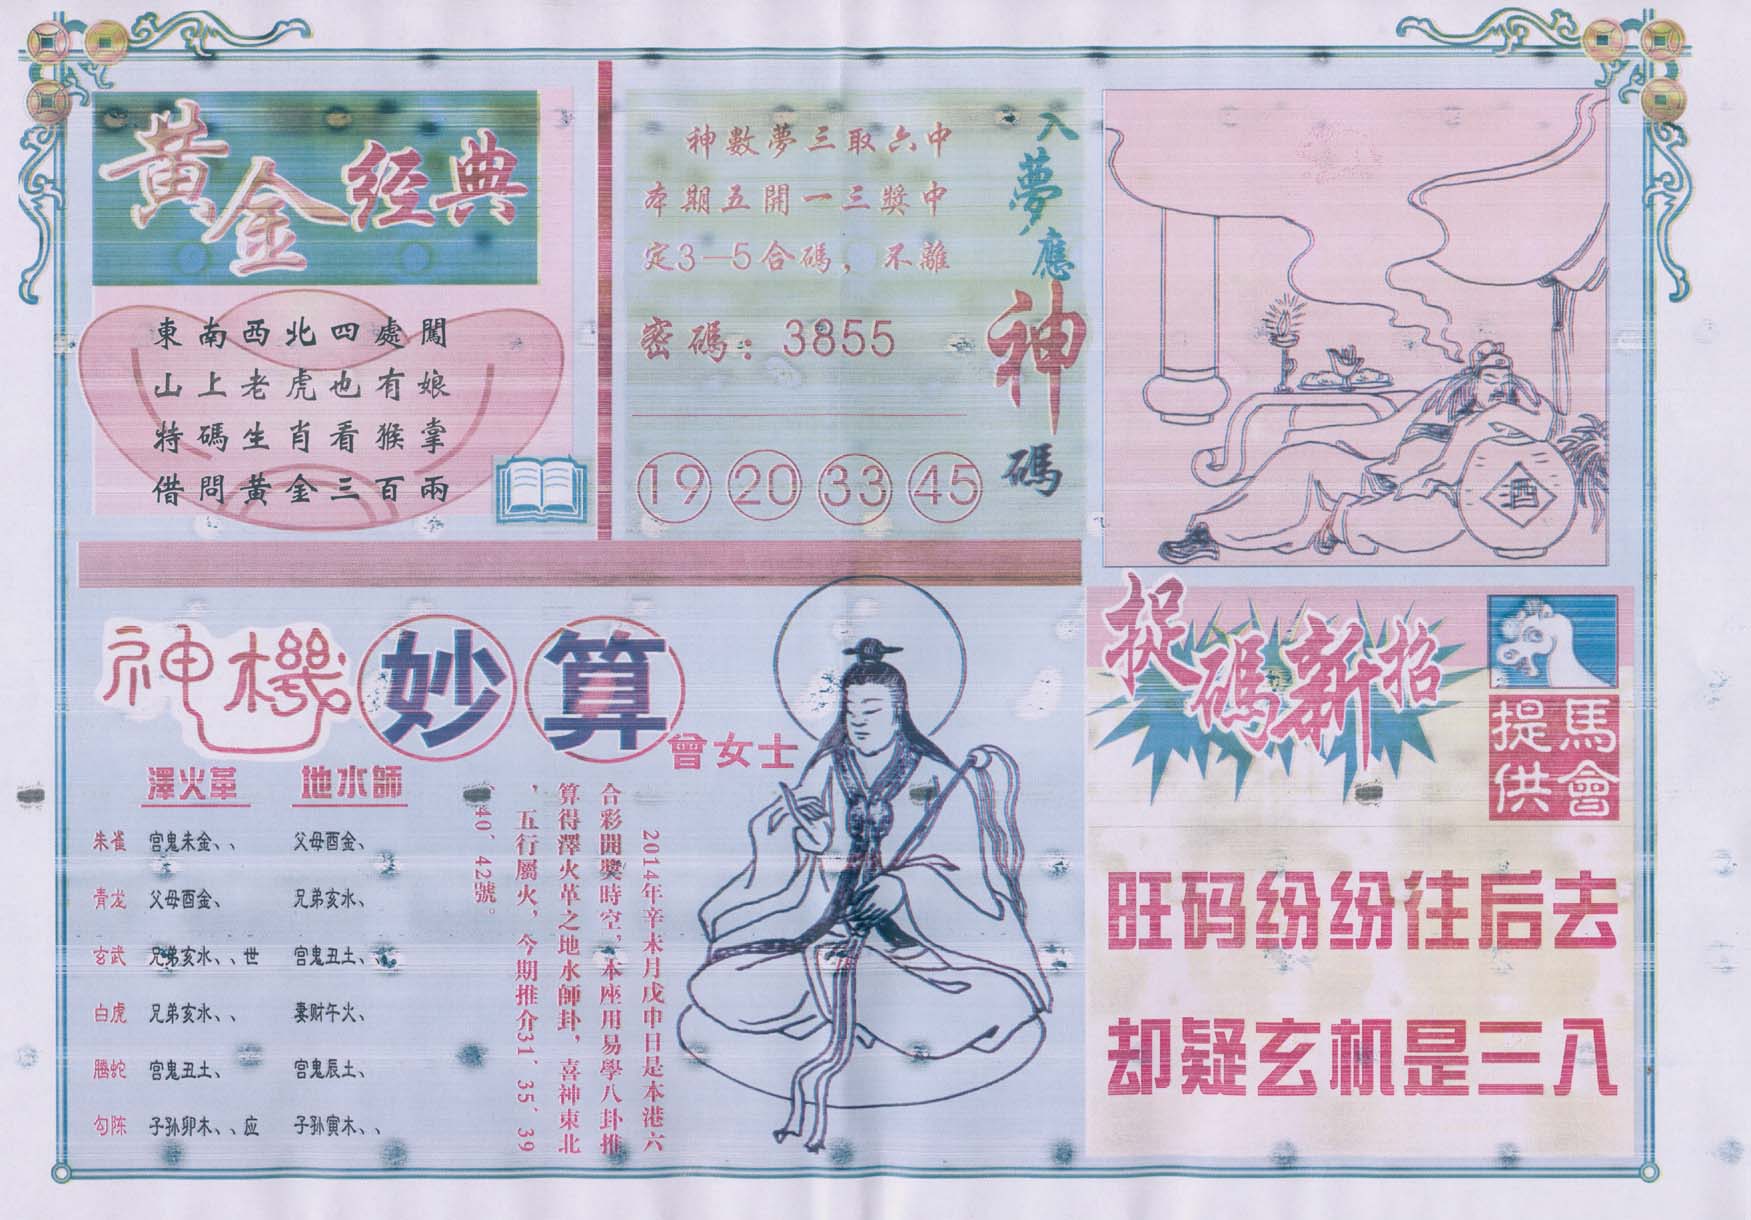 黃金經典
東南西北四處闖
山上老虎也有娘
特碼生肖看猴掌
借問黃金三百兩
神數夢三取六中
本期五開一三獎中
定3—5合碼，不離
密碼：3855
19 20 33 45
入夢應神碼
酒
神機妙算
曾女士
澤火革 地水師
朱雀 宫鬼未金、、 父母酉金、
青龙 父母酉金、 兄弟亥水、
玄武 兄弟亥水、、世 宫鬼丑土、、
白虎 兄弟亥水、、 妻财午火、
腾蛇 宫鬼丑土、 宫鬼辰土、
勾陈 子孙卯木、、应 子孙寅木、、
2014年辛未月戊申日是本港六
合彩開獎時空，本座用易學八卦推
算得澤火革之地水師卦，喜神東北
，五行屬火，今期推介31、35、39
、40、42號。
捉碼新招
馬會
提供
旺码纷纷往后去
却疑玄机是三八